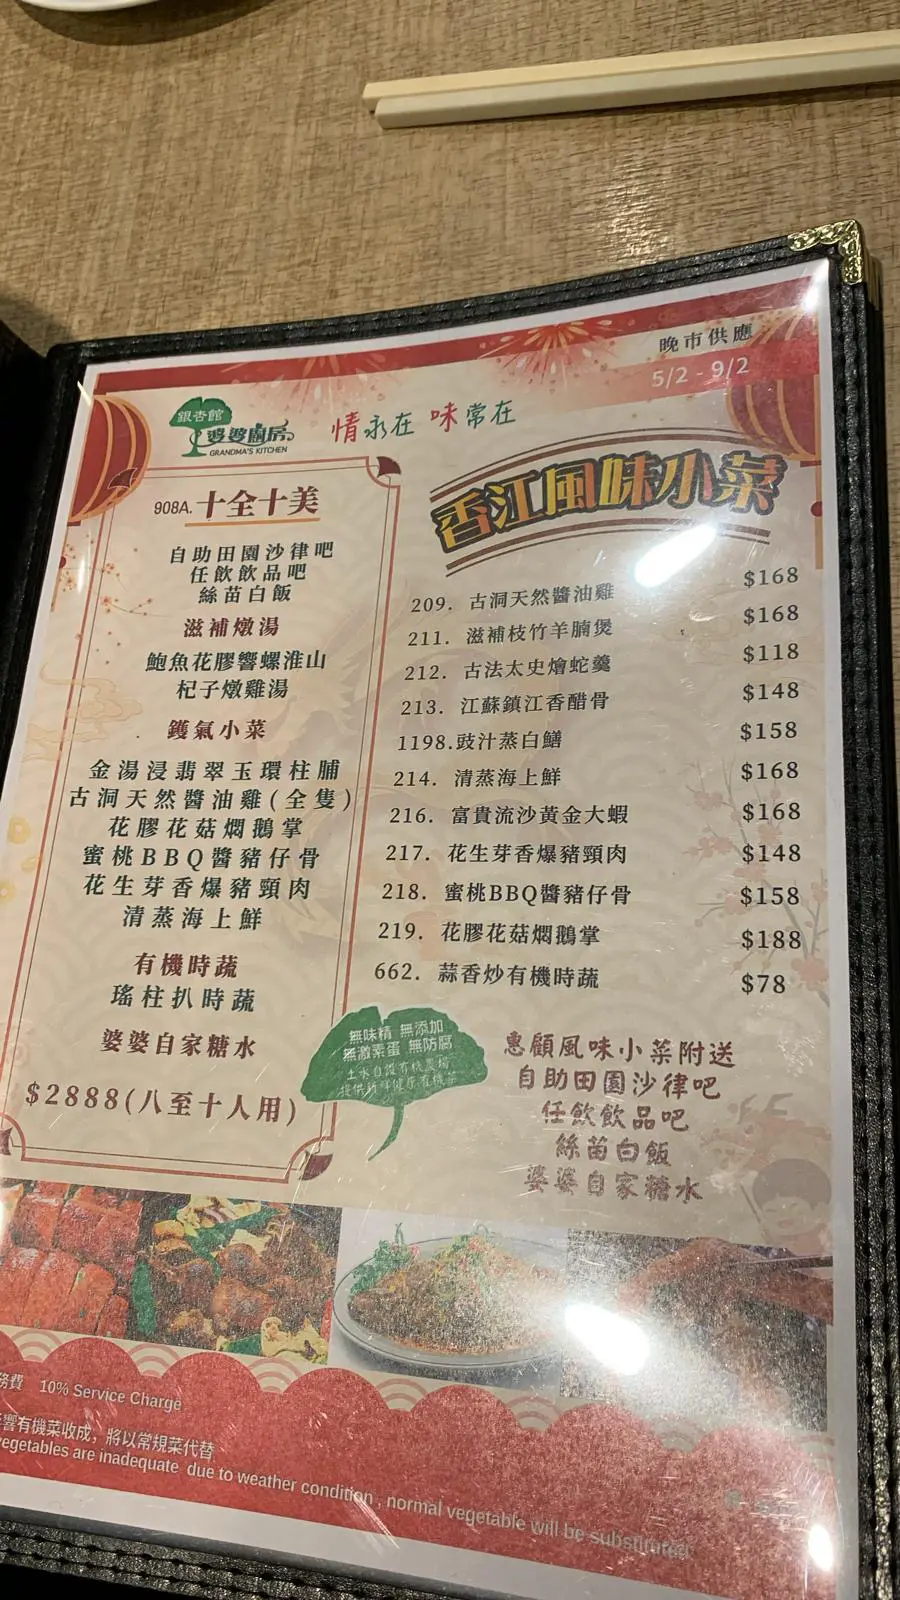 晚市供應
5/2 - 9/2
銀杏館
婆婆廚房
GRANDMA'S KITCHEN
情永在 味常在
908A. 十全十美
自助田園沙律吧
任飲飲品吧
絲苗白飯
滋補燉湯
鮑魚花膠響螺淮山
杞子燉雞湯
鑊氣小菜
金湯浸翡翠玉環柱脯
古洞天然醬油雞(全隻)
花膠花菇燜鵝掌
蜜桃BBQ醬豬仔骨
花生芽香爆豬頸肉
清蒸海上鮮
有機時蔬
瑤柱扒時蔬
婆婆自家糖水
$2888(八至十人用)
香江風味小菜
209. 古洞天然醬油雞 $168
211. 滋補枝竹羊腩煲 $168
212. 古法太史燴蛇羹 $118
213. 江蘇鎮江香醋骨 $148
1198.豉汁蒸白鱔 $158
214. 清蒸海上鮮 $168
216. 富貴流沙黃金大蝦 $168
217. 花生芽香爆豬頸肉 $148
218. 蜜桃BBQ醬豬仔骨 $158
219. 花膠花菇燜鵝掌 $188
662. 蒜香炒有機時蔬 $78
無味精 無添加
無激素蛋 無防腐
土水自設有機農場
提供新鮮健康有機菜
惠顧風味小菜附送
自助田園沙律吧
任飲飲品吧
絲苗白飯
婆婆自家糖水
務費 10% Service Charge
響有機菜收成，將以常規菜代替
vegetables are inadequate due to weather condition , normal vegetable will be substituted